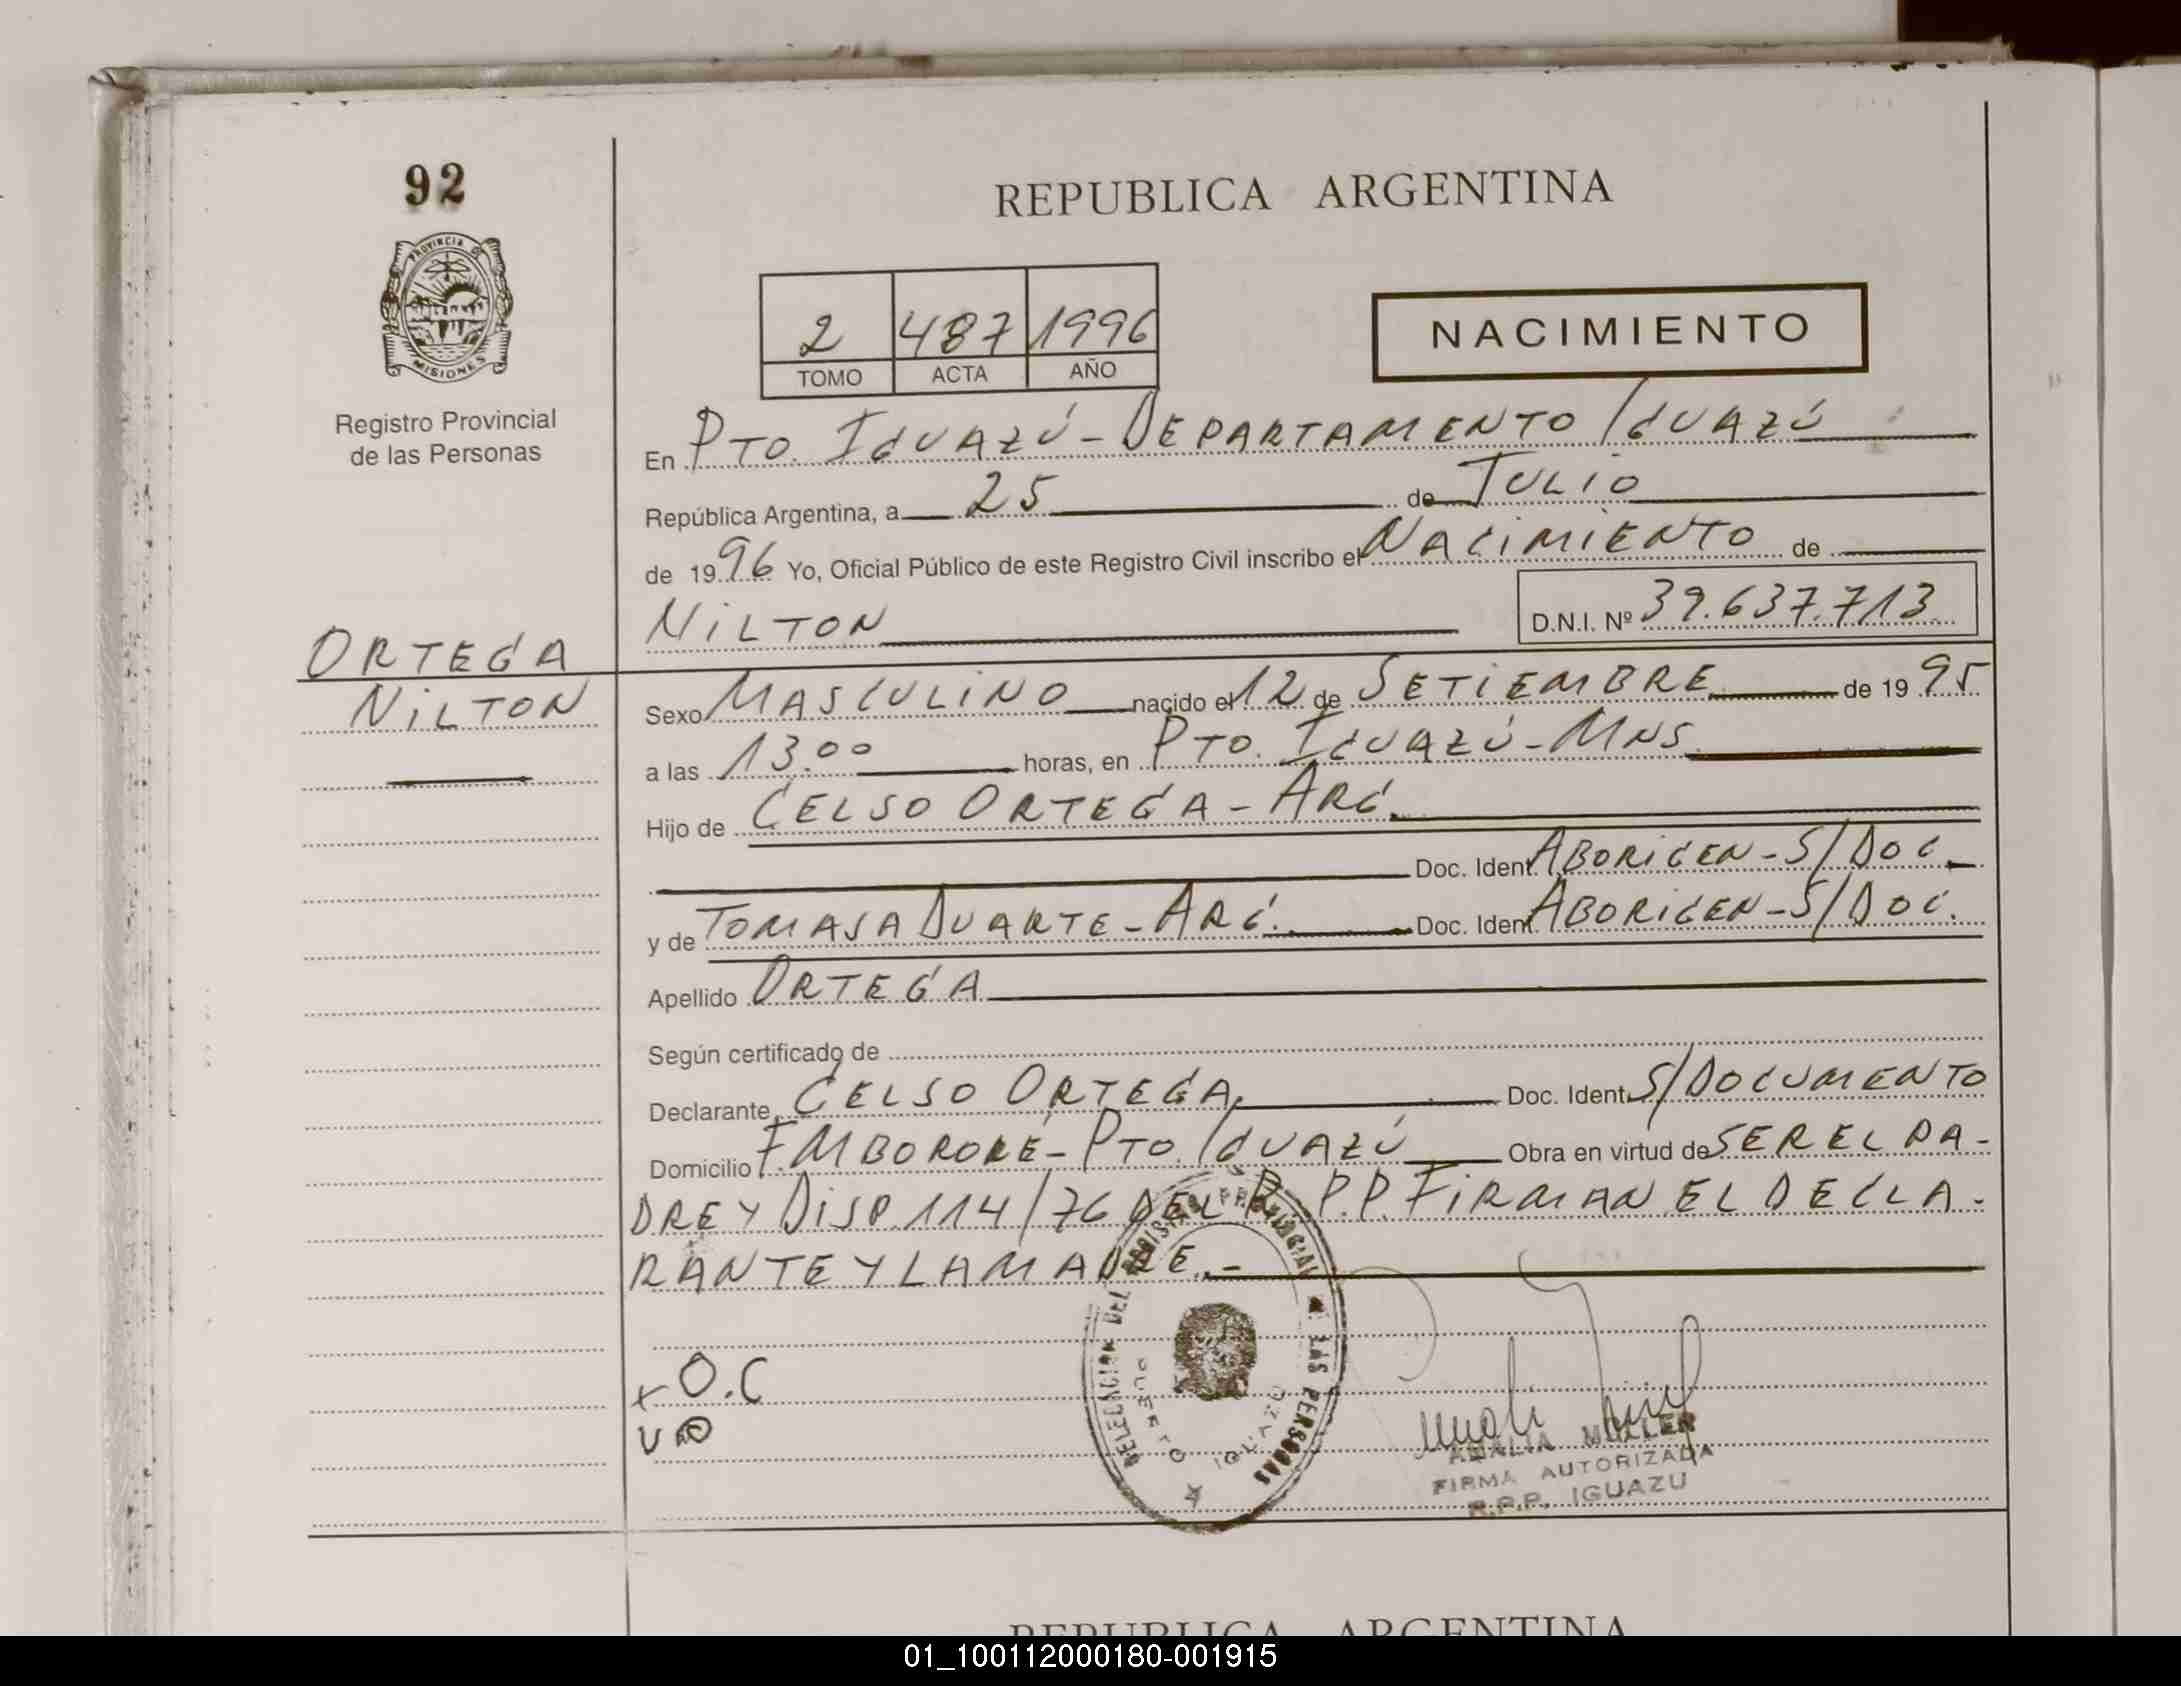 92
REPUBLICA ARGENTINA
PROVINCIA DE
MISIONES
Registro Provincial
de las Personas
2 487 1996
TOMO ACTA AÑO
NACIMIENTO
En PTO. IGUAZÚ - DEPARTAMENTO IGUAZÚ
República Argentina, a 25 de JULIO
de 1996 Yo, Oficial Público de este Registro Civil inscribo el NACIMIENTO de
NILTON D.N.I. Nº 39.637.713
ORTEGA
NILTON
Sexo MASCULINO nacido el 12 de SETIEMBRE de 1995
a las 13.00 horas, en PTO. IGUAZÚ - MNS.
Hijo de CELSO ORTEGA - ARG.
Doc. Ident. ABORIGEN - S/DOC.
y de TOMASA DUARTE - ARG. Doc. Ident. ABORIGEN - S/DOC.
Apellido ORTEGA
Según certificado de
Declarante CELSO ORTEGA Doc. Ident. S/DOCUMENTO
Domicilio F. MBORORÉ - PTO. IGUAZÚ Obra en virtud de SER EL PA-
DRE Y DISP. 114/76 DEL R. P.P. FIRMAN EL DECLA-
RANTE Y LA MADRE. -
DELEGACION DEL REGISTRO PROVINCIAL DE LAS PERSONAS
PUERTO IGUAZU
+ O.C
AMALIA MULLER
FIRMA AUTORIZADA
R.P.P. IGUAZU
REPUBLICA ARGENTINA
01_100112000180-001915